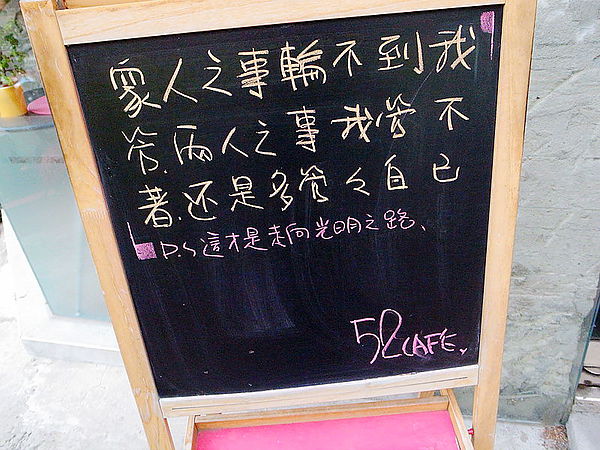 眾人之事輪不到我
管.兩人之事我管不
著.还是多管々自己
P.S 這才是走向光明之路、
52 CAFE.